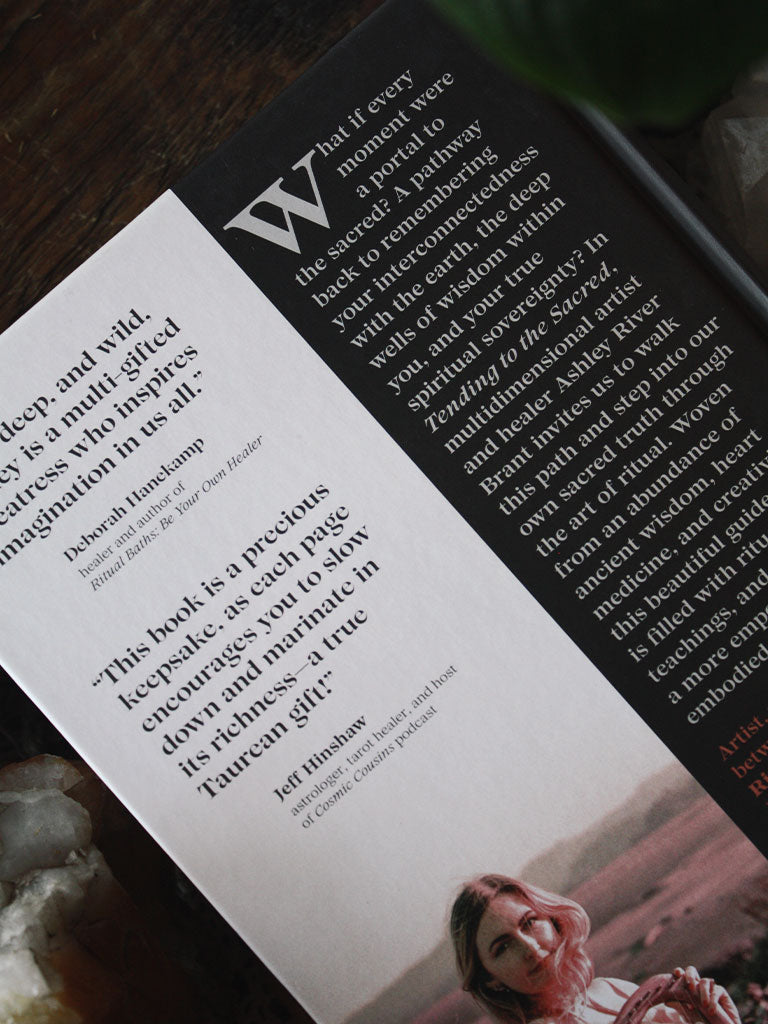 deep, and wild,
is a multi-gifted
who inspires
imagination in us all."
Deborah Hanekamp
healer and author of
Ritual Baths: Be Your Own Healer
"This book is a precious
keepsake, as each page
encourages you to slow
down and marinate in
its richness—a true
Taurean gift!"
Jeff Hinshaw
astrologer, tarot healer, and host
of Cosmic Cousins podcast
What if every
moment were
a portal to
the sacred? A pathway
back to remembering
your interconnectedness
with the earth, the deep
wells of wisdom within
you, and your true
spiritual sovereignty? In
Tending to the Sacred,
multidimensional artist
and healer Ashley River
Brant invites us to walk
this path and step into our
own sacred truth through
the art of ritual. Woven
from an abundance of
ancient wisdom, heart
medicine, and creativ
this beautiful guide
is filled with ritu
teachings, and
a more emp
embodied
Artist,
betw
Ri